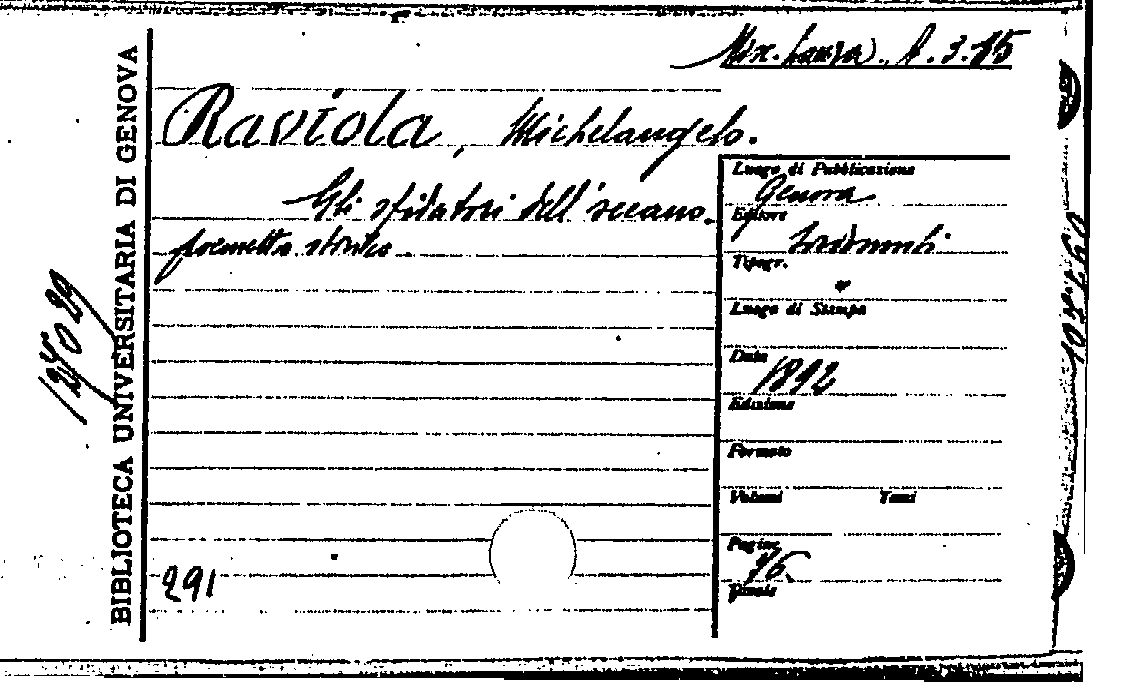 A.3.15
Raviola, Michelangelo.
Gli sfidatori dell'oceano.
poemetto storico
Luogo di Pubblicazione
Genova
Editore
Tipogr.
Luogo di Stampa
Data
1892
Edizione
Formato
Volumi Tomi
Pagine
16
Tavole
291
BIBLIOTECA UNIVERSITARIA DI GENOVA